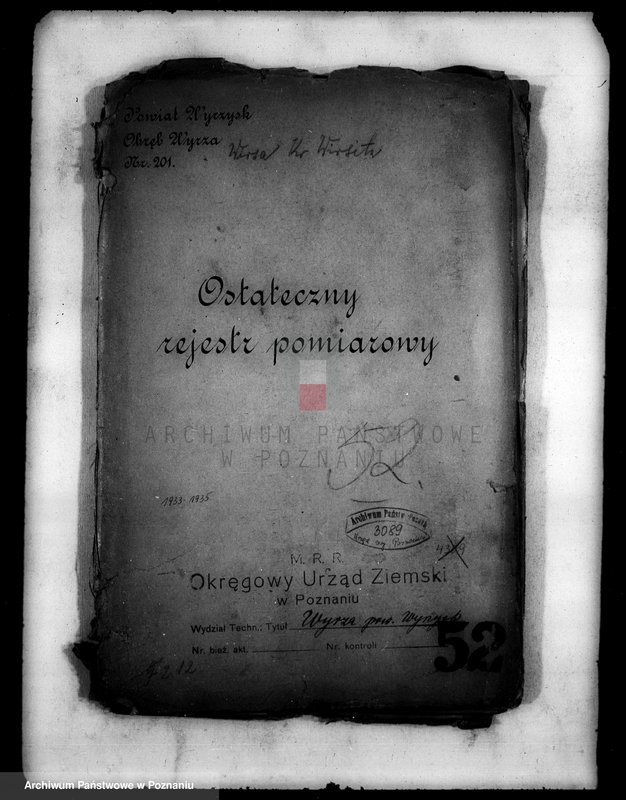 Powiat Wyrzysk
Obręb Wyrza
Nr. 201.
Wirsa Kr Wirsitz
Ostateczny
rejestr pomiarowy
ARCHIWUM PAŃSTWOWE
W POZNANIU
52.
1933-1935
Archiwum Państw
3089
M. R. R.
Okręgowy Urząd Ziemski
w Poznaniu
Wydział Techn., Tytuł Wyrza pow. Wyrzysk
Nr. bież. akt. Nr. kontroli
52
Archiwum Państwowe w Poznaniu